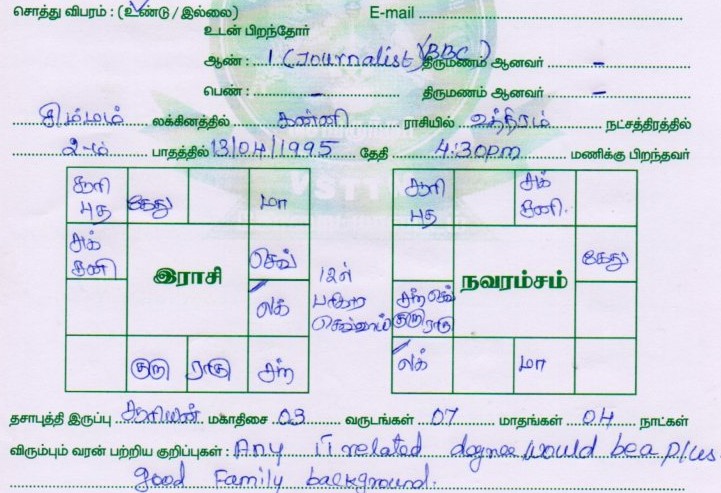 சொத்து விபரம் : (உண்டு / இல்லை) E-mail
உடன் பிறந்தோர்
ஆண் : 1 (Journalist, BBC) திருமணம் ஆனவர் -
பெண் : - திருமணம் ஆனவர் -
சிம்மம் லக்கினத்தில் கன்னி ராசியில் உத்திரம் நட்சத்திரத்தில்
2-ம் பாதத்தில் 13/04/1995 தேதி 4:30pm மணிக்கு பிறந்தவர்
சூரி புத கேது மா
சுக் சனி
இராசி
செவ்
லக்
குரு ராகு சந்
12ள்
செவ்வாய்
சூரி புத சுக் சனி
நவரம்சம்
கேது
சந் செவ் குரு ராகு
லக் மா
தசாபுத்தி இருப்பு சூரியன் மகாதிசை 03 வருடங்கள் 07 மாதங்கள் 04 நாட்கள்
விரும்பும் வரன் பற்றிய குறிப்புகள் : Any IT related degree would be a plus.
good Family background.